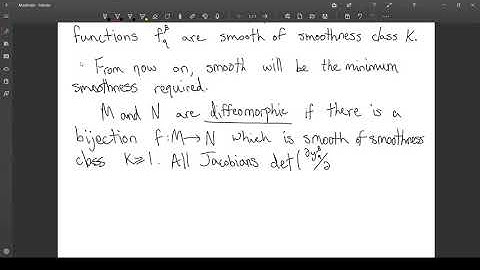 functions f_α^β are smooth of smoothness class K.
From now on, smooth will be the minimum
smoothness required.
M and N are diffeomorphic if there is a
bijection f: M → N which is smooth of smoothness
class K ≥ 1. All Jacobians det(∂y_α^β/∂